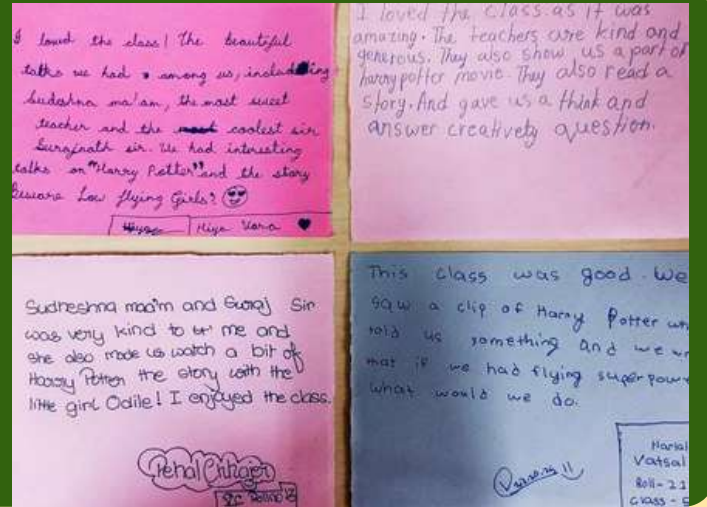 I loved the class! The beautiful
talks we had among us, including
Sudeshna ma'am, the most sweet
teacher and the coolest sir
Surajnath sir. We had interesting
talks on "Harry Potter" and the story
Beware Low flying Girls?
Hiya Vora
I loved the class.as it was
amazing. The teachers are kind and
generous. They also show us a part of
harry potter movie. They also read a
story. And gave us a think and
answer creativety question.
Sudreshna maa'm and Suraj Sir
was very kind to me and
she also made us watch a bit of
Harry Potter the story with the
little girl Odile! I enjoyed the class.
Pehal Chhajer
This class was good. We
saw a clip of Harry Potter
told us something and we
that if we had flying superpow
what would we do.
Vatsal
Roll-21
class -